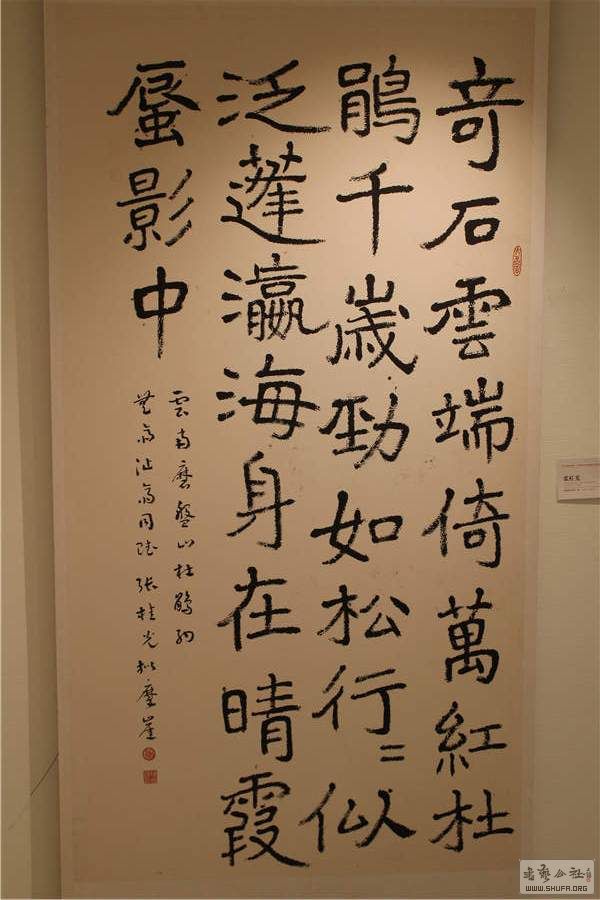 奇石雲端倚萬紅杜
鵑千歲勁如松行=似
泛蓬瀛海身在晴霞
蜃影中
雲南磨盤山杜鵑
齋沚齋同 張桂光 摩崖
書藝公社
WWW.SHUFA.ORG